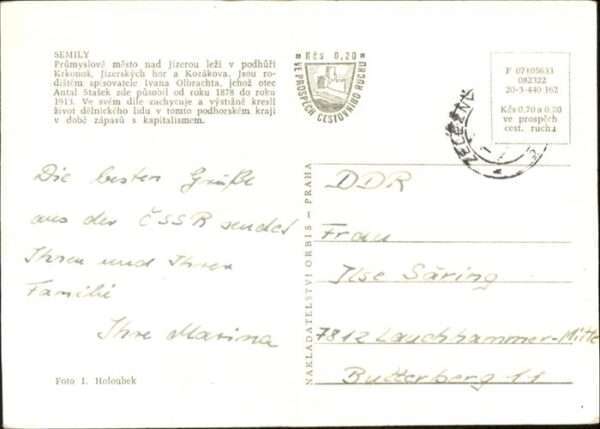 SEMILY
Průmyslové město nad Jizerou leží v podhůří
Krkonoš, Jizerských hor a Kozákova. Jsou ro-
dištěm spisovatele Ivana Olbrachta, jehož otec
Antal Stašek zde působil od roku 1878 do roku
1913. Ve svém díle zachycuje a výstižně kreslí
život dělnického lidu v tomto podhorském kraji
v době zápasů s kapitalismem.
Kčs 0,20
VE PROSPĚCH CESTOVNÍHO RUCHU
F 07105633
082322
20-3-440 162
Kčs 0,70 a 0,20
ve prospěch
cest. ruchu
Die besten Grüße
aus der ČSSR sendet
Ihnen und Ihrer
Familie
Ihre Marina
Foto J. Holoubek
NAKLADATELSTVÍ ORBIS — PRAHA
DDR
Frau
Ilse Säring
7812 Lauchhammer-Mitte
Butterberg 11